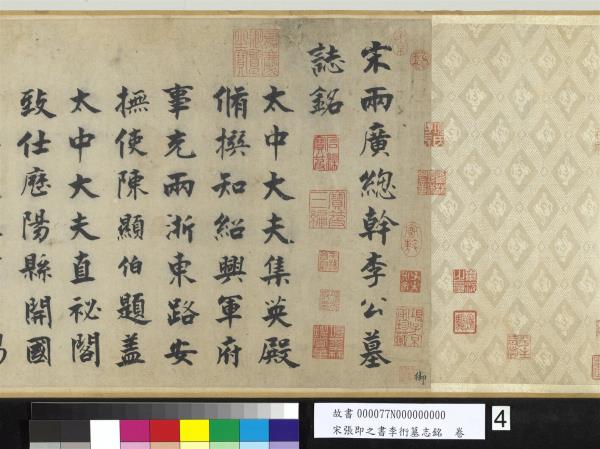 宋兩廣總幹李公墓
誌銘
太中大夫集英殿
脩撰知紹興軍府
事充兩浙東路安
撫使陳顯伯題蓋
太中大夫直祕閣
致仕歷陽縣開國
御
故書 000077N000000000
宋張即之書李衎墓志銘 卷
4